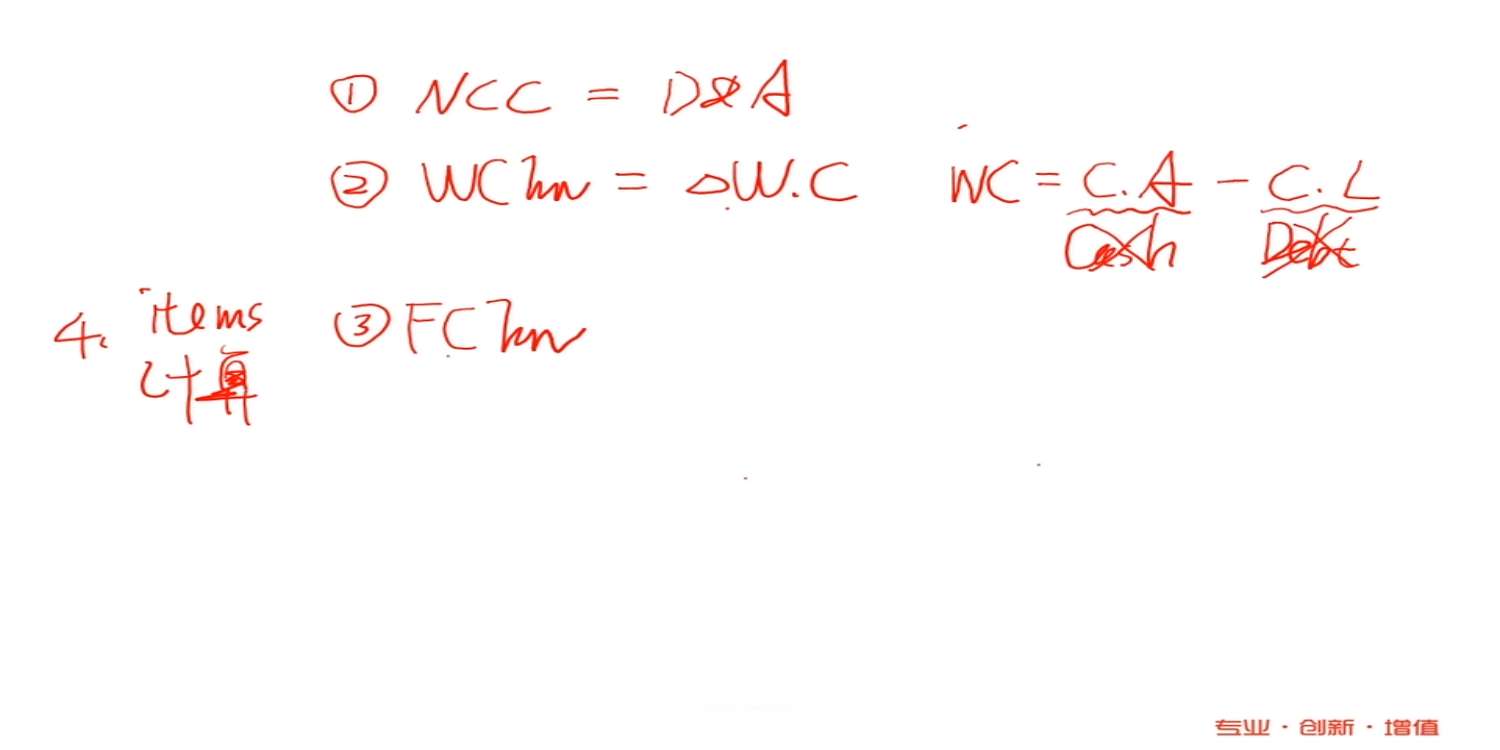 ① NCC = D&A
② WCInv = △W.C WC = C.A - C.L
Cash Debt
4. items ③ FCInv
计算
专业·创新·增值